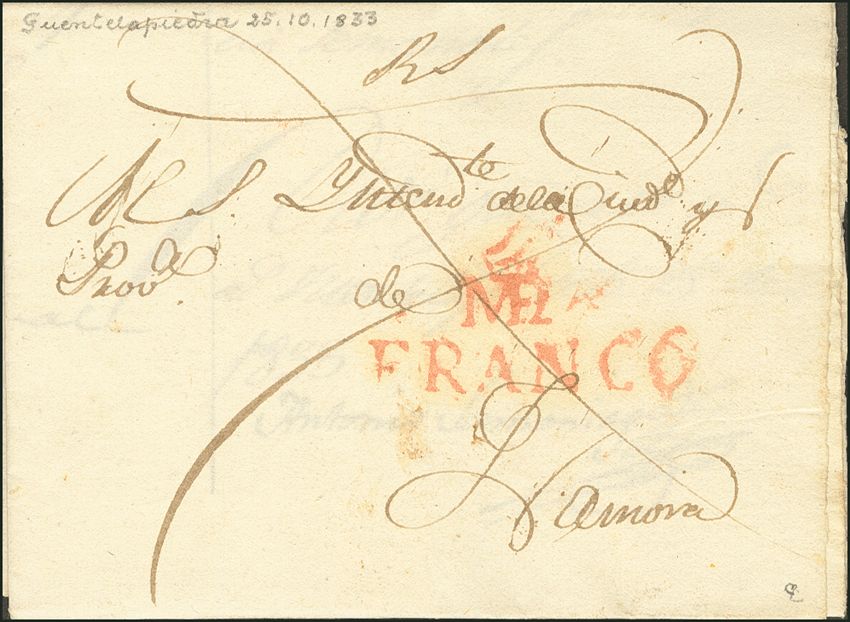 Fuentelapiedra 25.10.1833
R S
M S Yntend te de la Ciud d y
Prov a de
MR
FRANCO
Zamora